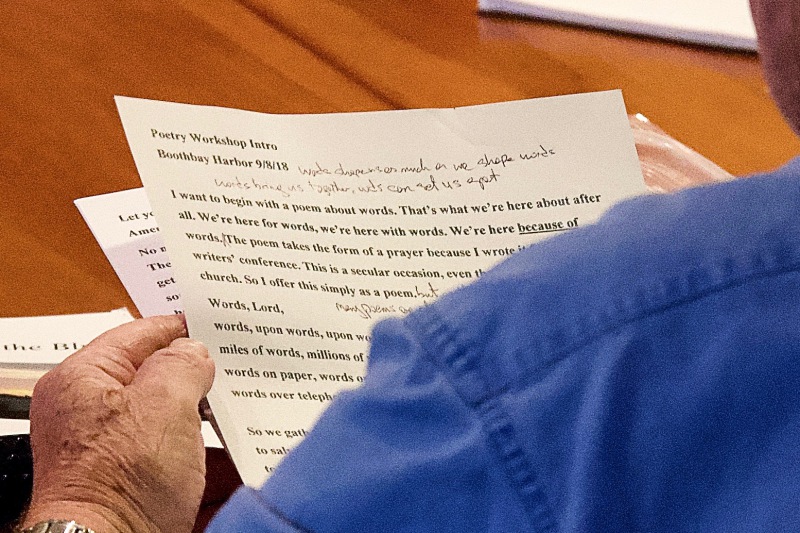 Poetry Workshop Intro
Boothbay Harbor 9/8/18 words shape us as much as we shape words
words bring us together, wds can set us apart
I want to begin with a poem about words. That's what we're here about after
all. We're here for words, we're here with words. We're here because of
words. The poem takes the form of a prayer because I wrote it
writers' conference. This is a secular occasion, even th
church. So I offer this simply as a poem, but
many poems are
Words, Lord,
words, upon words, upon wo
miles of words, millions of
words on paper, words o
words over teleph
So we gath
to sal
Let yo
Amer
No
The
get
so
the Bl